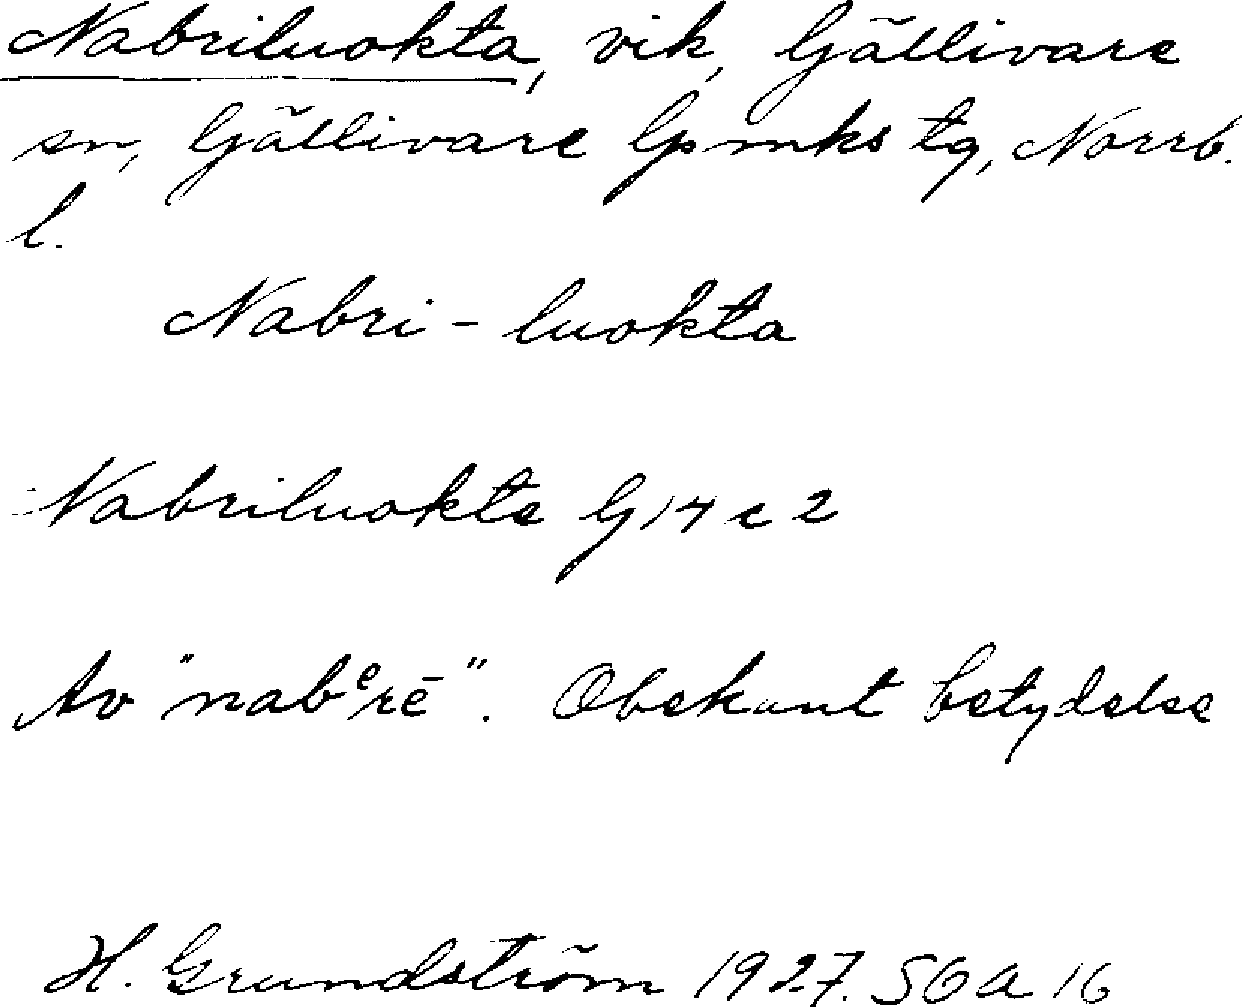 Nabriluokta, vik, Gällivare
sn, Gällivare lpmks tg, Norrb.
l.
Nabri-luokta
Nabriluokte G 14 c 2
Av "nabᵉrē". Obekant betydelse
H. Grundström 1927. SOA 16